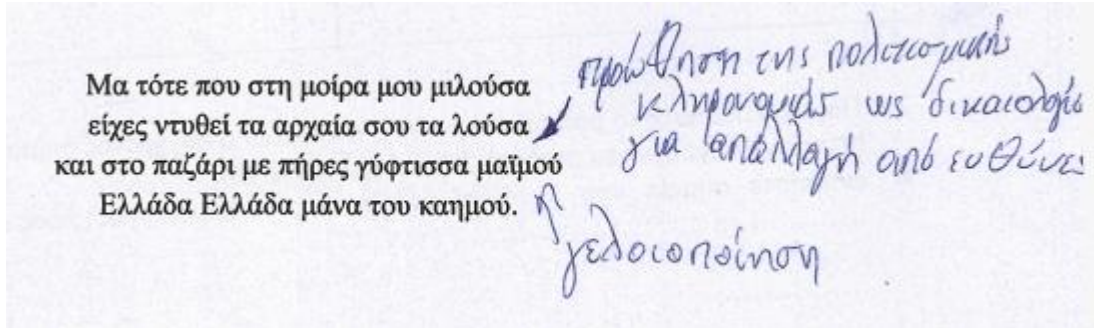 Μα τότε που στη μοίρα μου μιλούσα
είχες ντυθεί τα αρχαία σου τα λούσα
και στο παζάρι με πήρες γύφτισσα μαϊμού
Ελλάδα Ελλάδα μάνα του καημού.
προώθηση της πολιτισμικής
κληρονομιάς ως δικαιολογία
για απαλλαγή από ευθύνες
γελοιοποίηση